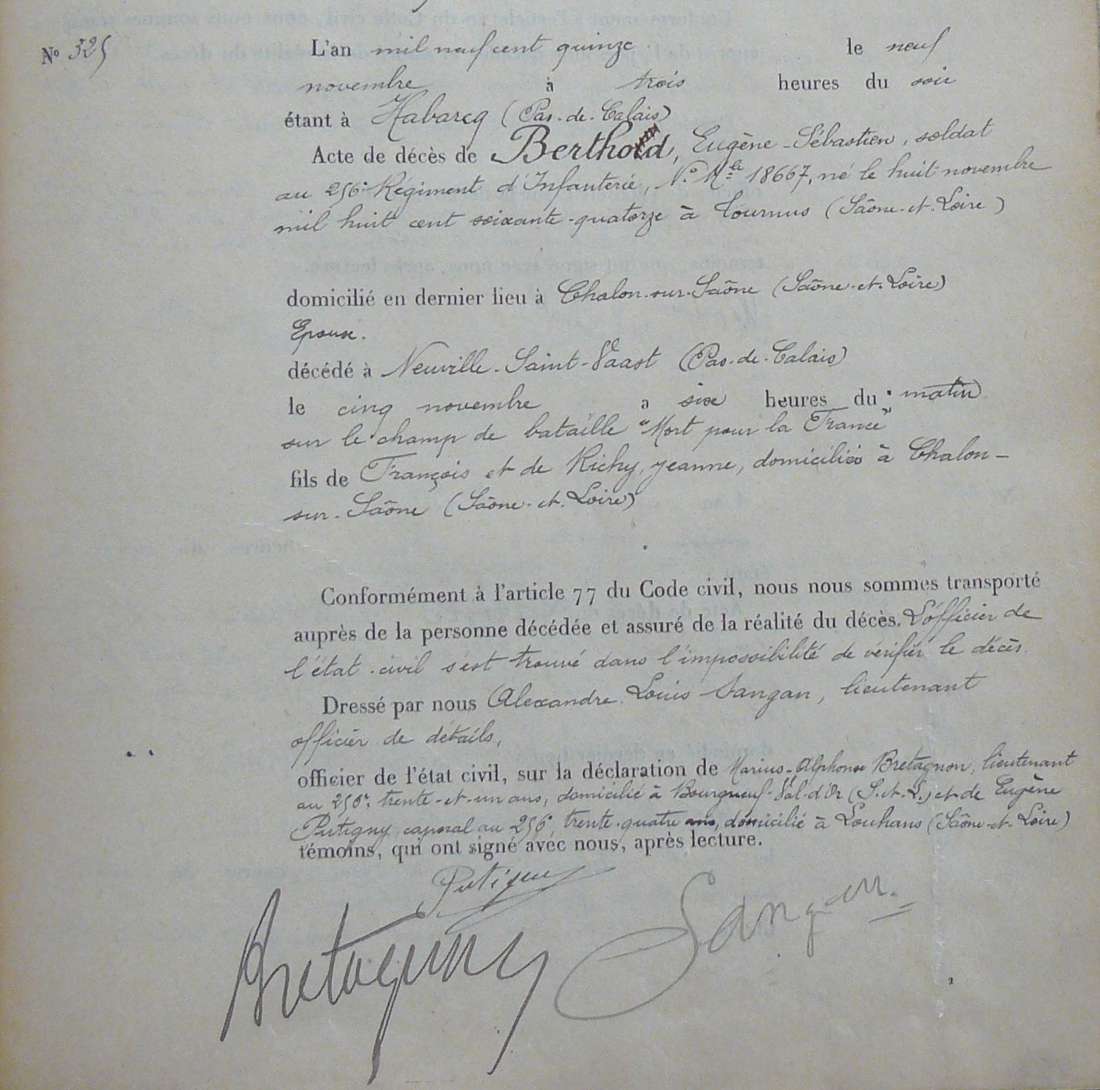 N° 325
L'an mil neuf cent quinze le neuf
novembre à trois heures du soir
étant à Habarcq (Pas-de-Calais)
Acte de décès de Berthod, Eugène-Sébastien, soldat
au 256e Régiment d'Infanterie, N° Mle 18667, né le huit novembre
mil huit cent soixante-quatorze à Tournus (Saône-et-Loire)
domicilié en dernier lieu à Chalon-sur-Saône (Saône-et-Loire)
Epoux.
décédé à Neuville-Saint-Vaast (Pas-de-Calais)
le cinq novembre a six heures du matin
sur le champ de bataille "Mort pour la France"
fils de François et de Richy, Jeanne, domiciliés à Chalon-
sur-Saône (Saône-et-Loire)
Conformément à l'article 77 du Code civil, nous nous sommes transporté
auprès de la personne décédée et assuré de la réalité du décès. L'officier de
l'état-civil s'est trouvé dans l'impossibilité de vérifier le décès.
Dressé par nous Alexandre Louis Sangan, lieutenant
officier de détails,
officier de l'état civil, sur la déclaration de Marius-Alphonse Bretagnon, lieutenant
au 256e, trente-et-un ans, domicilié à Bourgneuf-Val-d'Or (S.et.L.) et de Eugène
Putigny, caporal au 256e, trente-quatre ans, domicilié à Louhans (Saône-et-Loire)
témoins, qui ont signé avec nous, après lecture.
Putigny
Bretagnon
Sangan